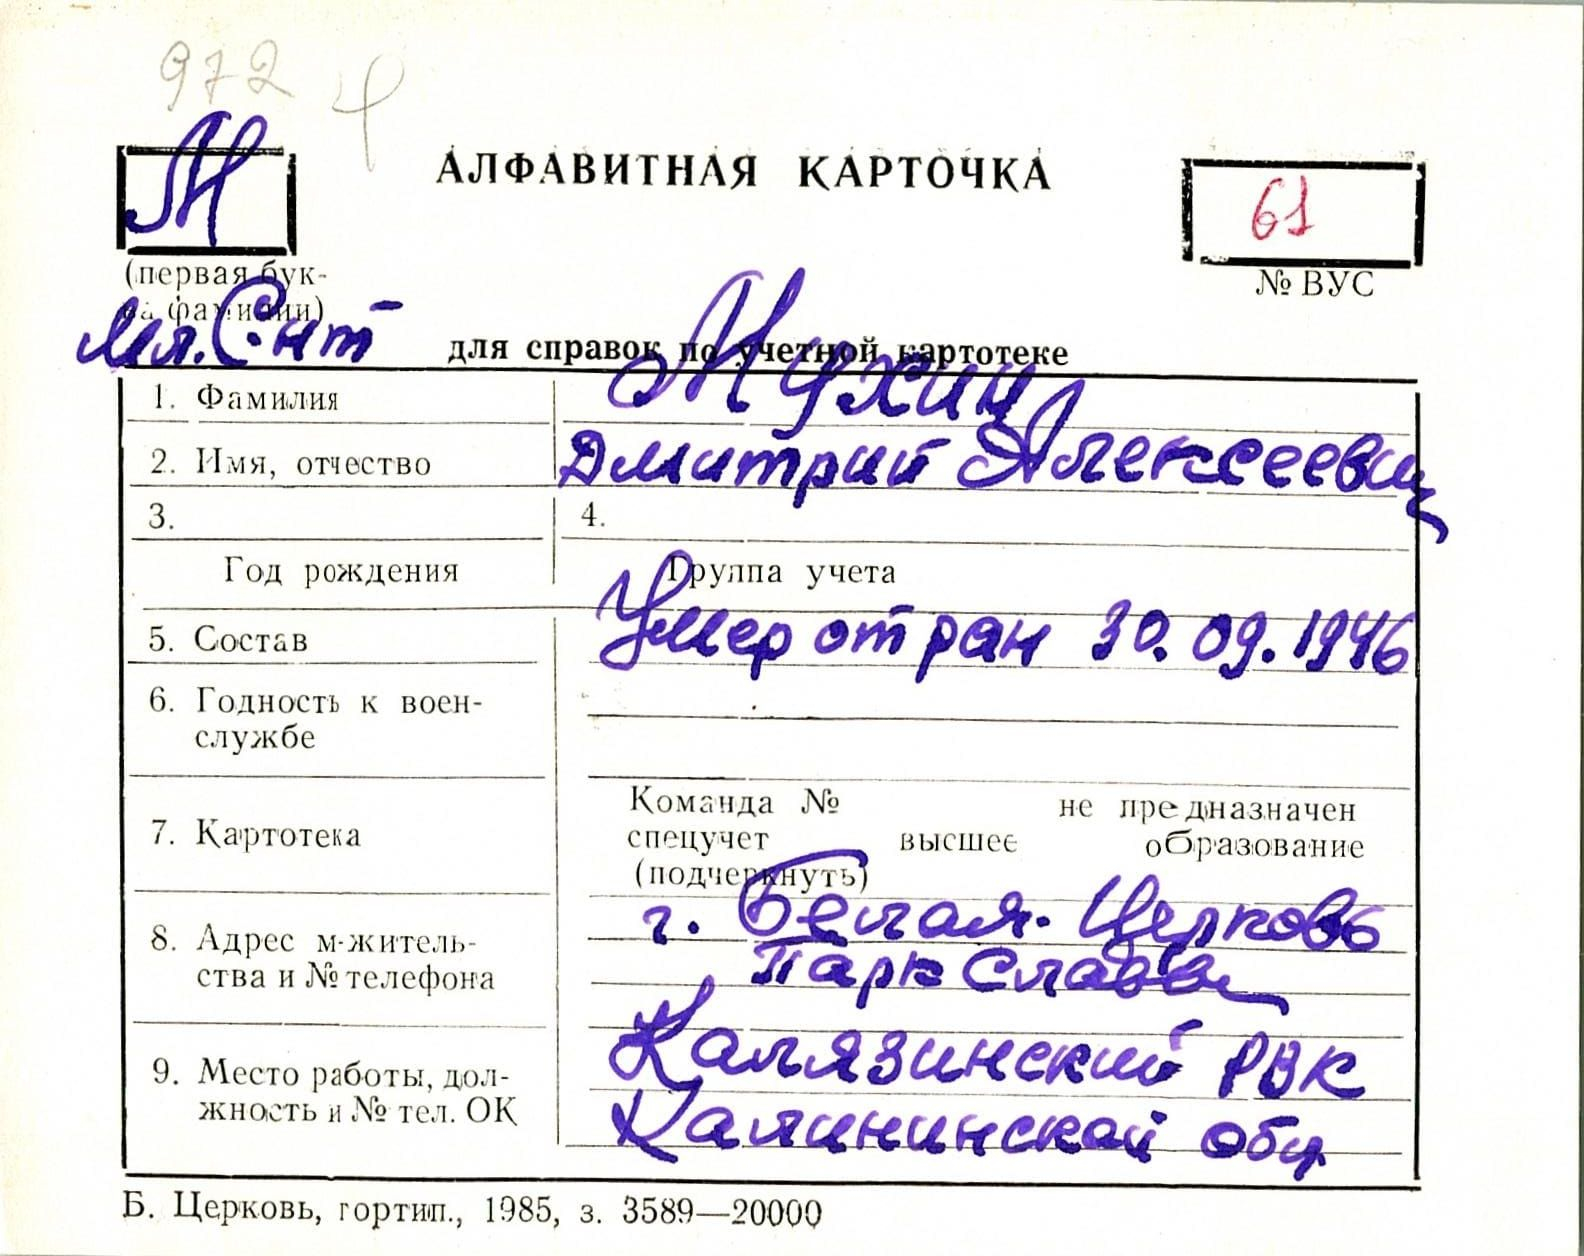 972
М
АЛФАВИТНАЯ КАРТОЧКА
61
(первая бук-
ва фамилии)
№ ВУС
мл. С-нт
для справок по учетной картотеке
1. Фамилия Мухин
2. Имя, отчество Дмитрий Алексеевич
3. 4.
Год рождения Группа учета
5. Состав Умер от ран 30.09.1946
6. Годность к воен-
службе
7. Картотека
Команда № не предназначен
спецучет высшее образование
(подчеркнуть)
8. Адрес м-житель-
ства и № телефона
г. Белая-Церковь
Парк Славы
9. Место работы, дол-
жность и № тел. ОК
Калязинский РВК
Калининской обл
Б. Церковь, гортип., 1985, з. 3589—20000